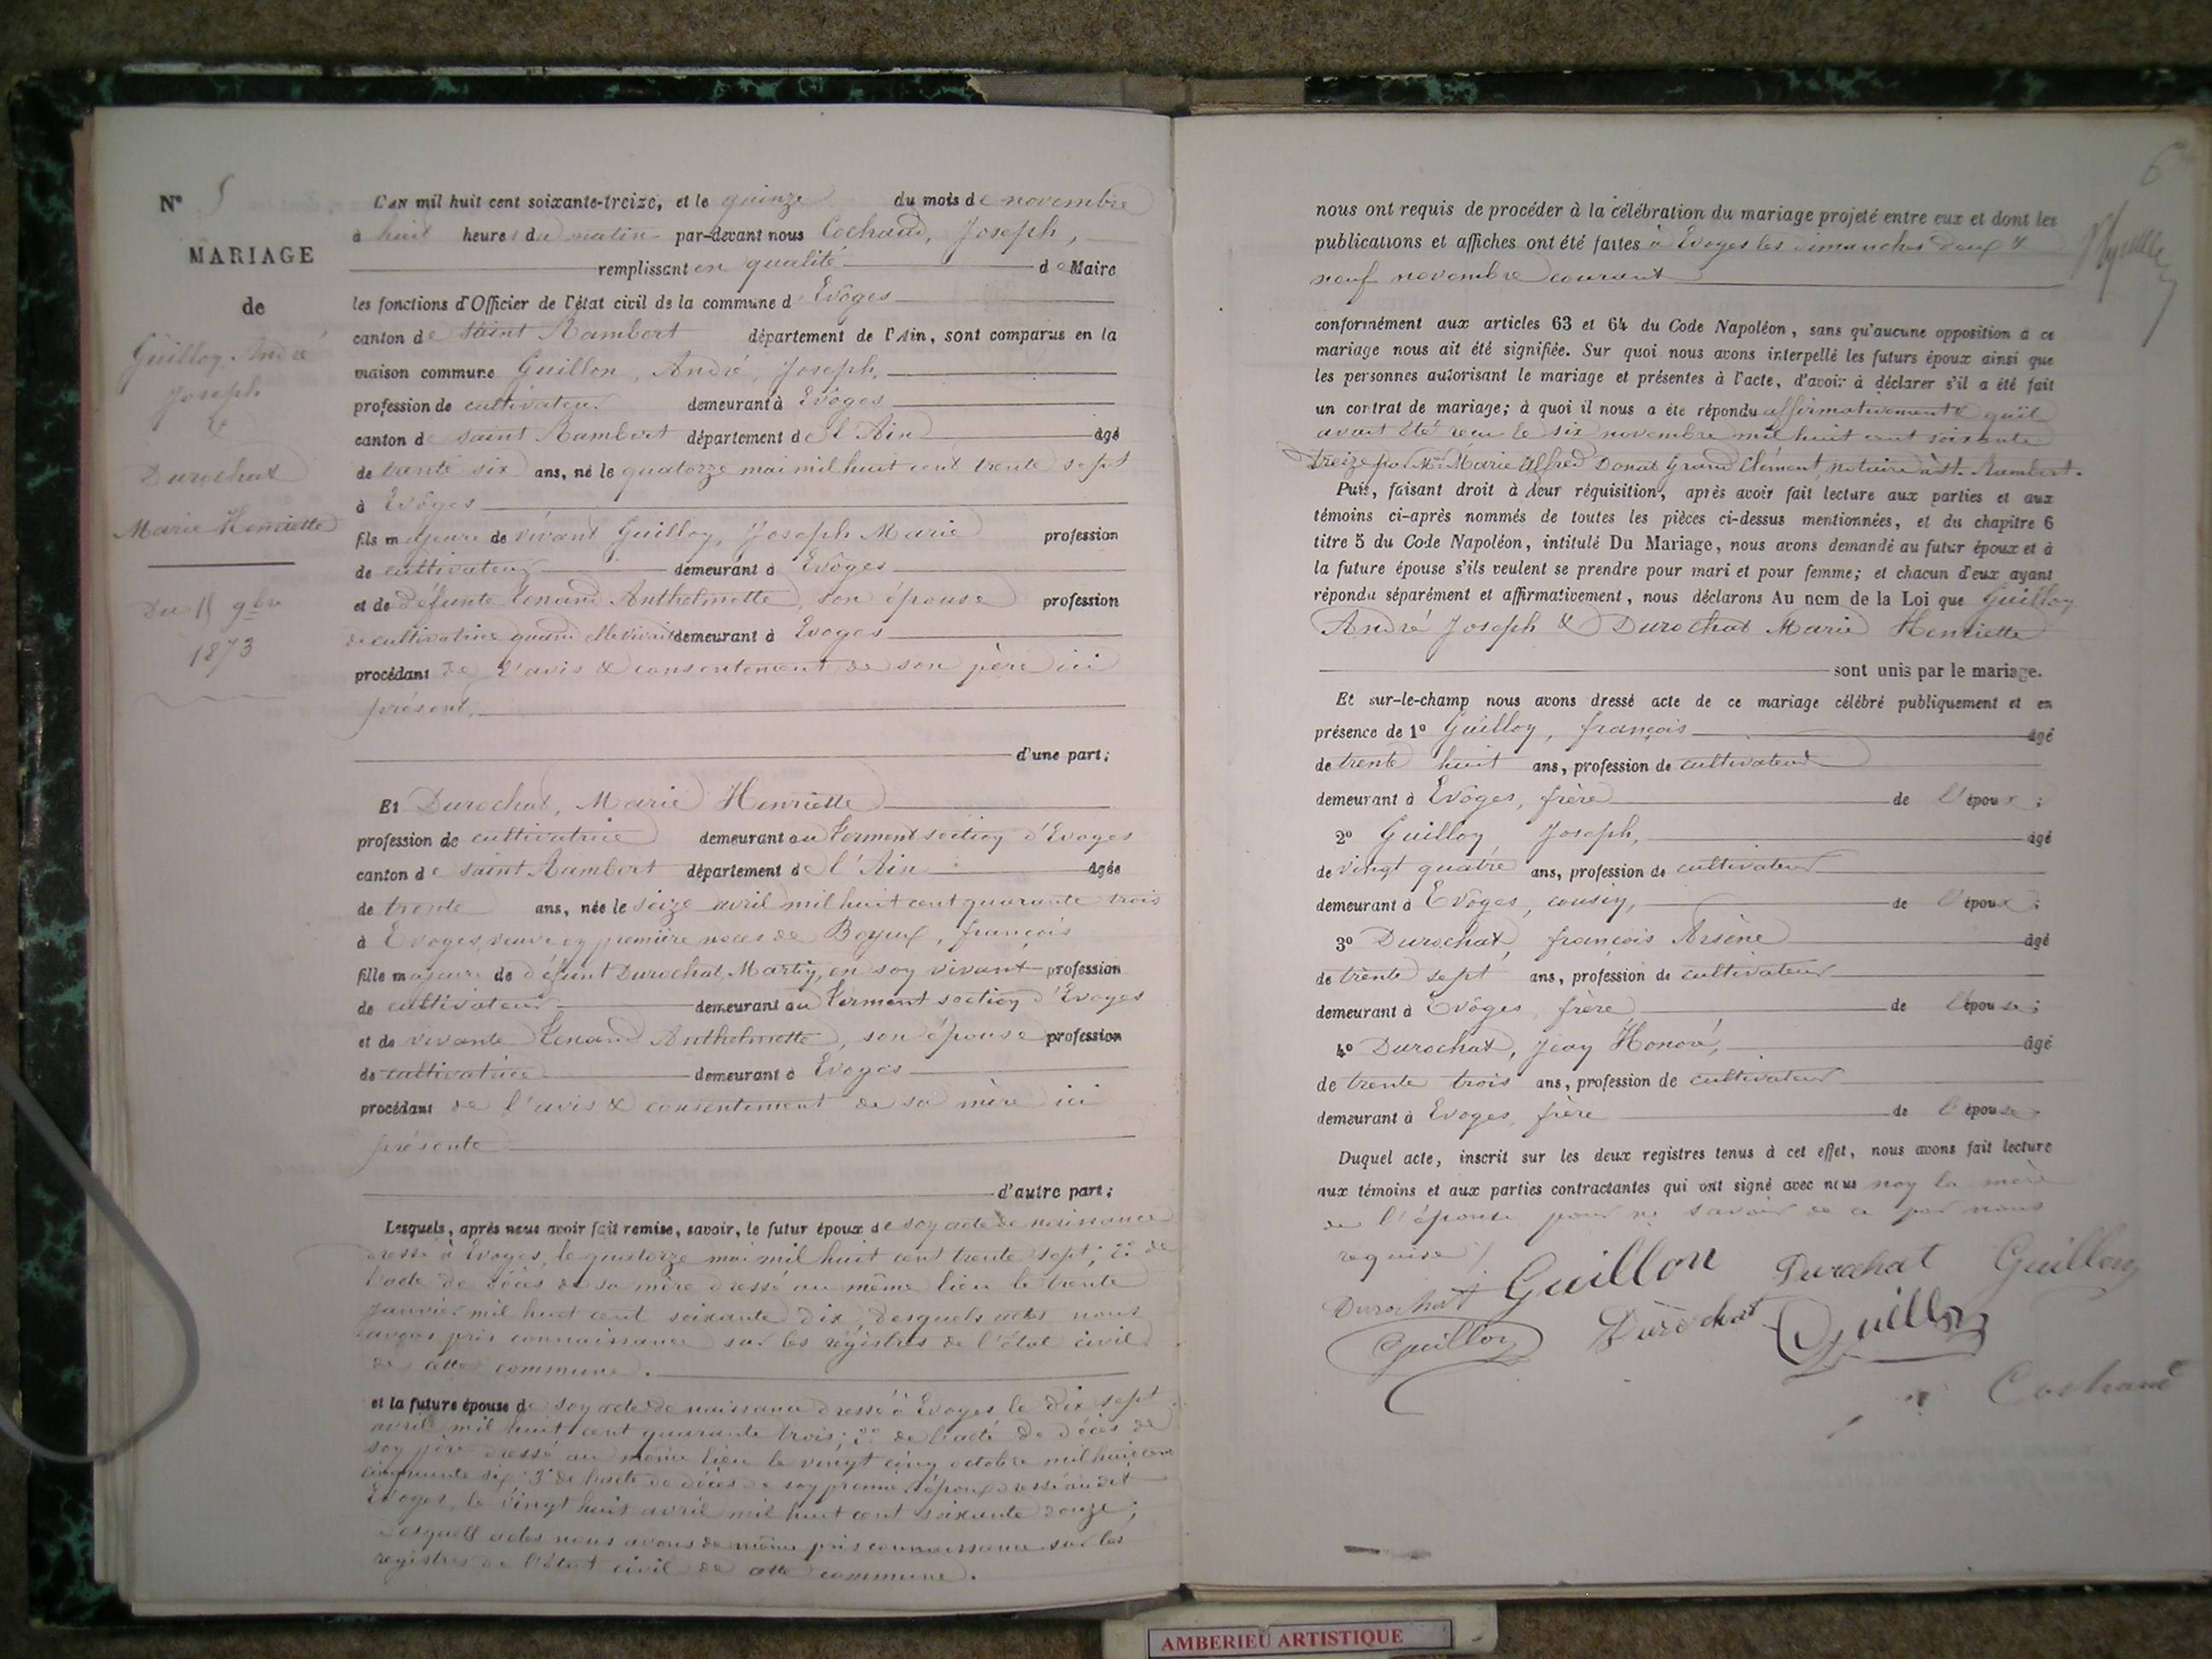 N° 5
MARIAGE
de
Guillon André
Joseph
&
Durochat
Marie Henriette
Du 15 9bre
1873
L'AN mil huit cent soixante-treize, et le quinze du mois de novembre
à huit heures du matin par-devant nous Cochand, Joseph,
remplissant en qualité de Maire
les fonctions d'Officier de l'état civil de la commune d'Evoges
canton de Saint Rambert département de l'Ain, sont comparus en la
maison commune Guillon, André, Joseph,
profession de cultivateur demeurant à Evoges
canton de saint Rambert département de l'Ain âgé
de trente six ans, né le quatorze mai mil huit cent trente sept
à Evoges
fils majeur de vivant Guillon, Joseph Marie profession
de cultivateur demeurant à Evoges
et de défunte Anthelmette, son épouse profession
de cultivatrice quand elle vivait demeurant à Evoges
procédant de l'avis & consentement de son père ici
présent,
d'une part;
Et Durochat, Marie Henriette
profession de cultivatrice demeurant au section d'Evoges
canton de saint Rambert département de l'Ain âgée
de trente ans, née le seize avril mil huit cent quarante trois
à Evoges, veuve en première noces de François
fille majeure de défunt Durochat, Martin, en son vivant profession
de cultivateur demeurant au section d'Evoges
et de vivante Anthelmette, son épouse profession
de cultivatrice demeurant à Evoges
procédant de l'avis & consentement de sa mère ici
présente
d'autre part;
Lesquels, après nous avoir fait remise, savoir, le futur époux de son acte de naissance
dressé à Evoges, le quatorze mai mil huit cent trente sept; 2° de
l'acte de décès de sa mère dressé au même lieu le trente
janvier mil huit cent soixante dix, desquels actes nous
avons pris connaissance sur les registres de l'état civil
de cette commune.
et la future épouse de son acte de naissance dressé à Evoges le dix sept
avril mil huit cent quarante trois; 2° de l'acte de décès de
son père dressé au même lieu le vingt cinq octobre mil huit cent
cinquante six; 3° de l'acte de décès de son premier époux dressé au dit
Evoges, le vingt huit avril mil huit cent soixante douze;
desquels actes nous avons de même pris connaissance sur les
registres de l'état civil de cette commune.
6
nous ont requis de procéder à la célébration du mariage projeté entre eux et dont les
publications et affiches ont été faites à Evoges les dimanches deux &
neuf novembre courant
conformément aux articles 63 et 64 du Code Napoléon, sans qu'aucune opposition à ce
mariage nous ait été signifiée. Sur quoi nous avons interpellé les futurs époux ainsi que
les personnes autorisant le mariage et présentes à l'acte, d'avoir à déclarer s'il a été fait
un contrat de mariage; à quoi il nous a été répondu affirmativement & qu'il
avait été reçu le six novembre mil huit cent soixante
treize par Me Marie Alfred Donat Grand Clément, notaire à St. Rambert.
Puis, faisant droit à leur réquisition, après avoir fait lecture aux parties et aux
témoins ci-après nommés de toutes les pièces ci-dessus mentionnées, et du chapitre 6
titre 5 du Code Napoléon, intitulé Du Mariage, nous avons demandé au futur époux et à
la future épouse s'ils veulent se prendre pour mari et pour femme; et chacun d'eux ayant
répondu séparément et affirmativement, nous déclarons Au nom de la Loi que Guillon
André Joseph & Durochat Marie Henriette
sont unis par le mariage.
Et sur-le-champ nous avons dressé acte de ce mariage célébré publiquement et en
présence de 1° Guillon, françois âgé
de trente huit ans, profession de cultivateur
demeurant à Evoges, frère de l'époux;
2° Guillon Joseph, âgé
de vingt quatre ans, profession de cultivateur
demeurant à Evoges, cousin, de l'époux;
3° Durochat, françois Arsène âgé
de trente sept ans, profession de cultivateur
demeurant à Evoges, frère de l'épouse;
4° Durochat, Jean Honoré, âgé
de trente trois ans, profession de cultivateur
demeurant à Evoges, frère de l'épouse
Duquel acte, inscrit sur les deux registres tenus à cet effet, nous avons fait lecture
aux témoins et aux parties contractantes qui ont signé avec nous non la mère
de l'épouse pour ne savoir de ce par nous
requise
Durochat Guillon Durochat Guillon
Guillon Durochat Guillon
Cochand
AMBERIEU ARTISTIQUE